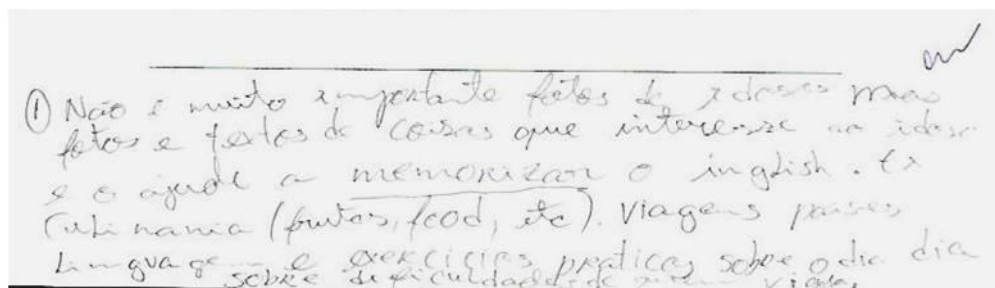 ① Não é muito importante fotos de idosos mas
fotos e textos de coisas que interesse ao idoso
e o ajude a memorizar o inglish. Ex
Culinania (frutas, food, etc). Viagens paises
Linguagem e exercicios praticos sobre o dia dia
sobre dificuldade de viajar